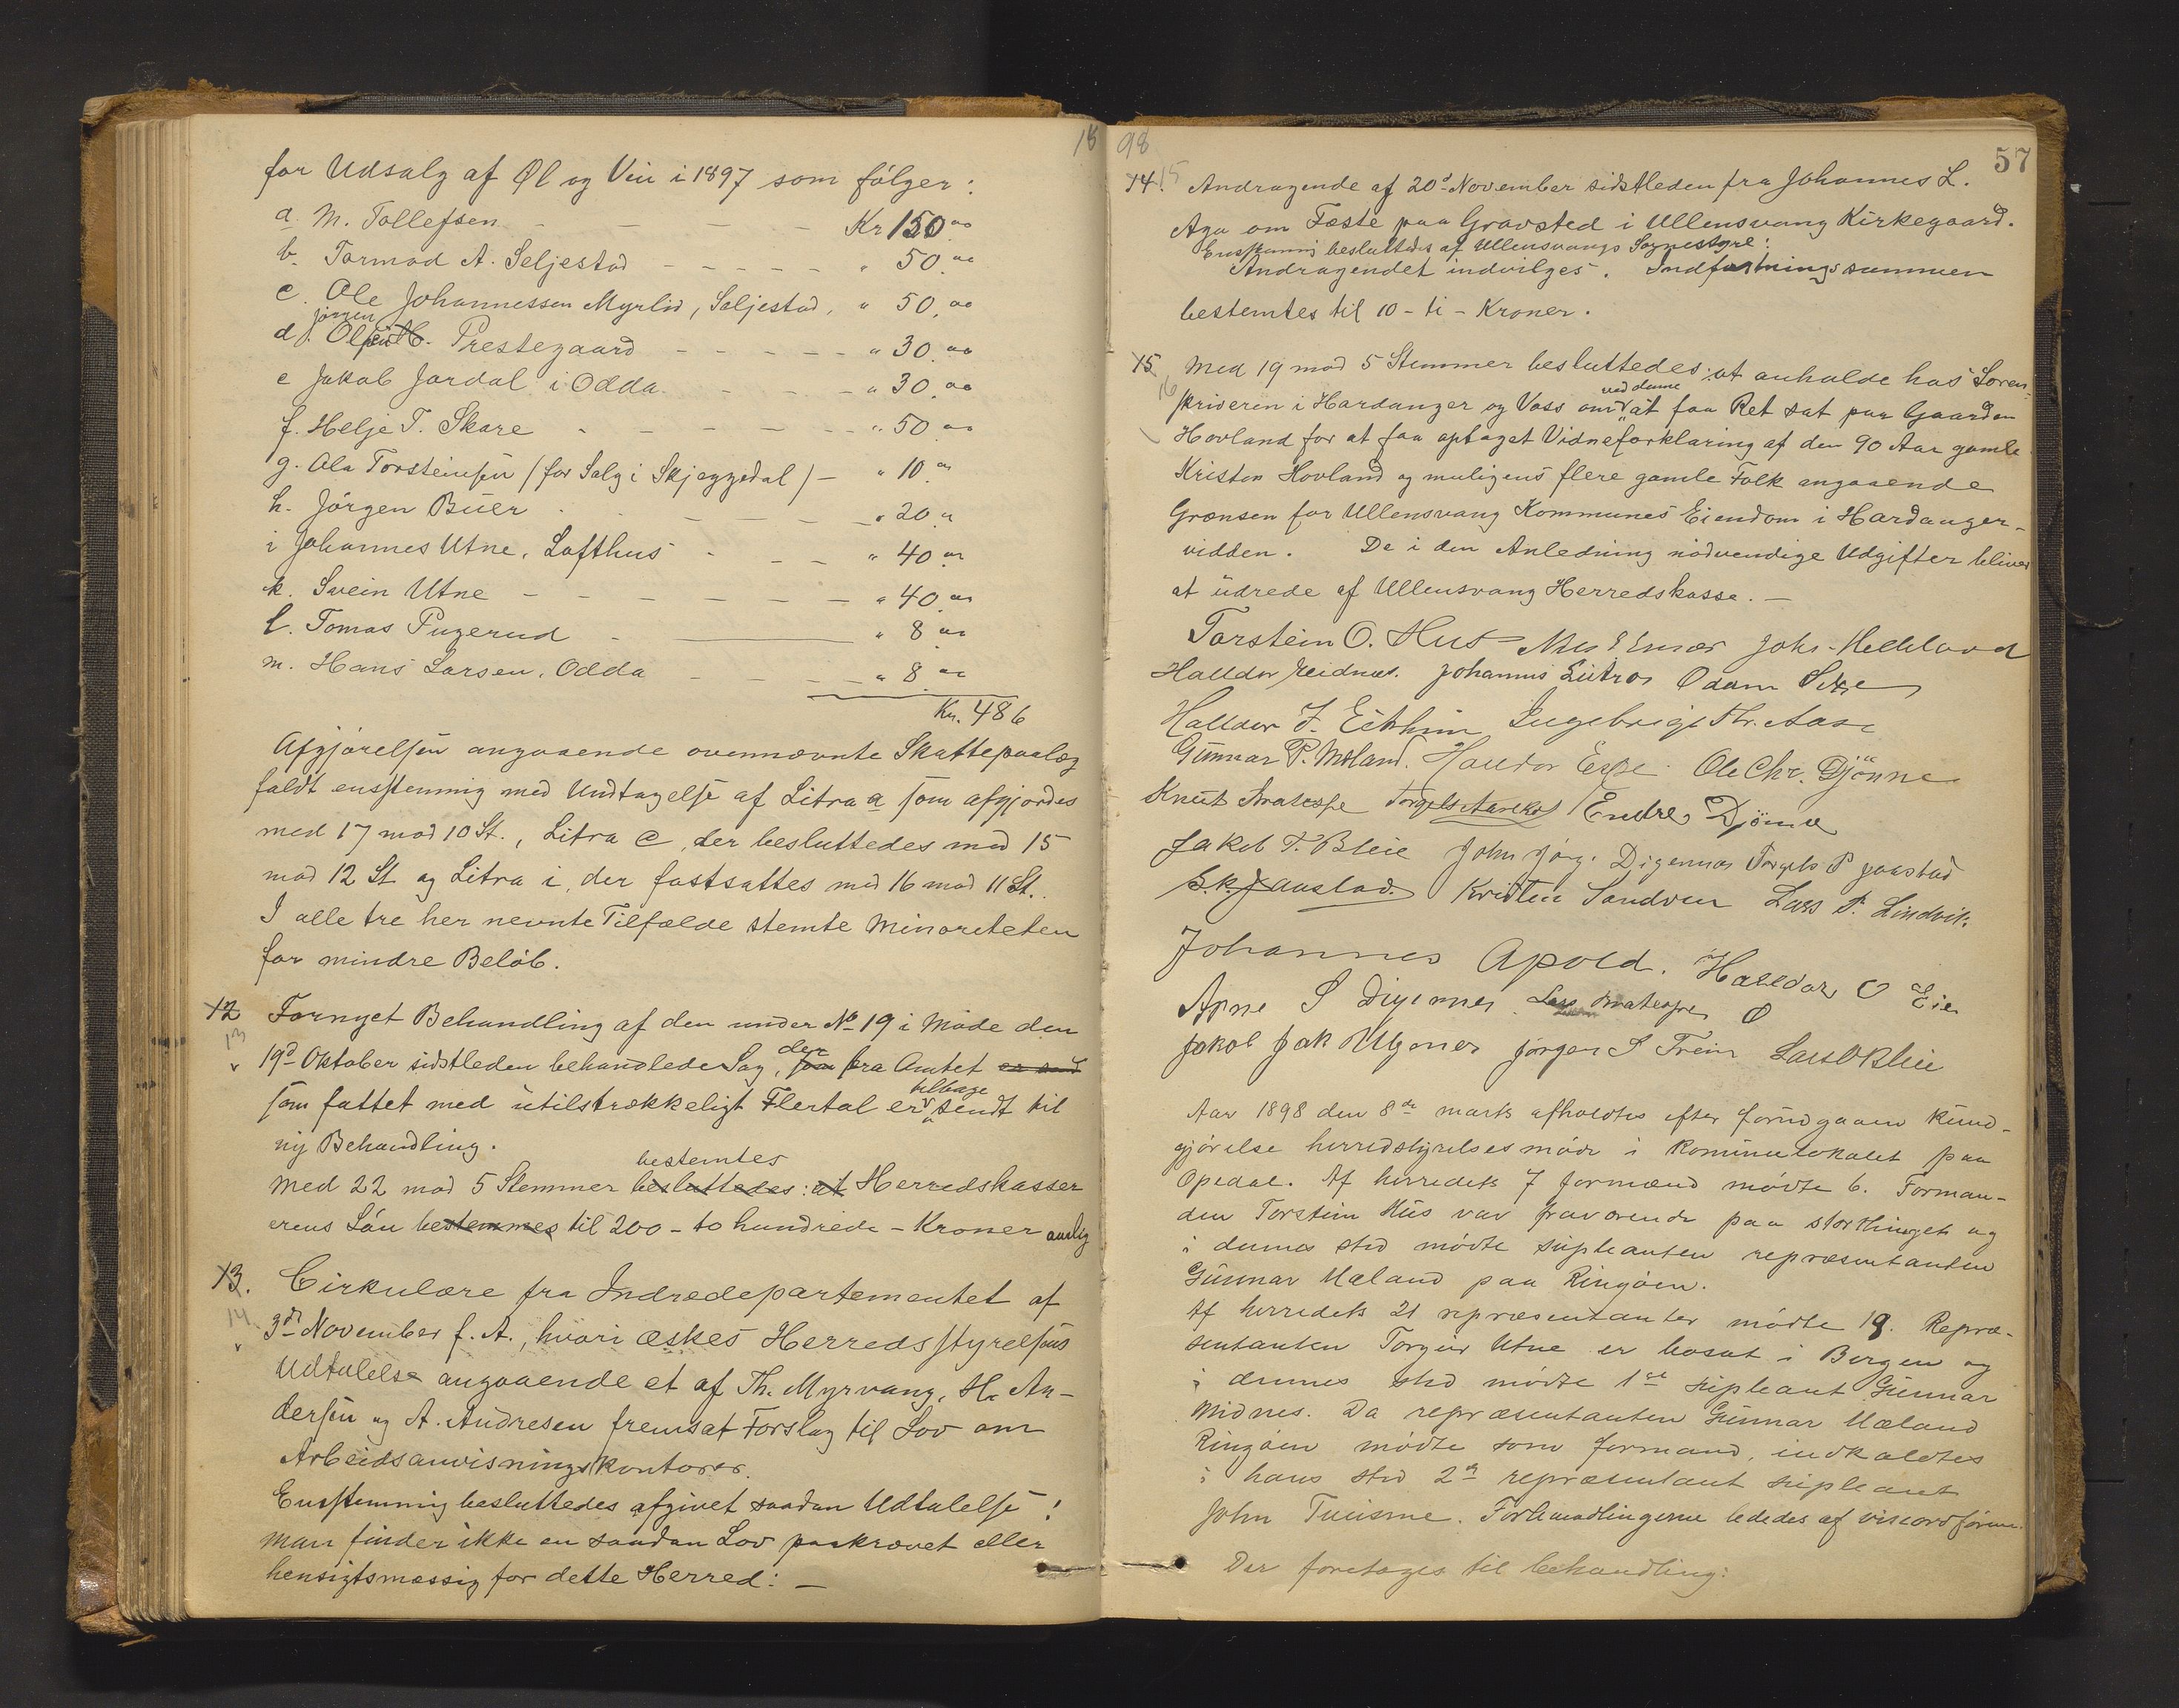 18
for Udsalg af Øl og Vin i 1897 som følger:
a. M. Tollefsen - - - - Kr 150.00
b. Tormod A. Seljestad - - - - - " 50.00
c. Ole Johannessen Myrlid, Seljestad, " 50.00
Jørgen
d. Olsen H. Prestegaard - - - - - " 30.00
e Jakob Jordal i Odda. - - - " 30.00
f. Helje T. Skare - - - - - - " 50.00
g. Ola Torsteinsen (for Salg i Skjeggedal) - " 10.00
h. Jørgen Buer - - - - - - " 20.00
i Johannes Utne, Lofthus - - - " 40.00
k. Svein Utne - - - - - - - " 40.00
l. Tomas Pugerud - " 8.00
m. Hans Larsen, Odda - - - - - " 8.00
Kr. 486
Afgjørelsen angaaende ovennævnte Skattepaalæg
faldt enstemmig med Undtagelse af Litra a som afgjordes
med 17 mod 10 St., Litra c, der besluttedes med 15
mod 12 St og Litra i, der fastsattes med 16 mod 11 St.
I alle tre her nevnte Tilfælde stemte Minoriteten
for mindre Beløb.
12 Fornyet Behandling af den under No 19 i Møde den
13
19d Oktober sidstleden behandlede Sag, som der fra Amtet er send
som fattet med utilstrækkeligt Flertal er tilbage sendt til
ny Behandling.
bestemtes
Med 22 mod 5 Stemmer besluttedes: at Herredskasser
erens Løn bestemmes til 200 - to hundrede - Kroner aarlig
13. Cirkulære fra Indredepartementet af
14.
3die November f. A., hvori æskes Herredsstyrelsens
Udtalelse angaaende et af Th. Myrvang, H. An-
dersen og A. Andresen fremsat Forslag til Lov om
Arbeidsanvisningskontorer.
Enstemmig besluttedes afgivet saadan Udtalelse:
Man finder ikke en saadan Lov paakrævet eller
hensigtsmæssig for dette Herred: -
98
57
14. 15 Andragende af 20de November sidstleden fra Johannes L.
Aga om Fæste paa Gravsted i Ullensvang Kirkegaard.
Enstemmig besluttedes af Ullensvangs Sognestyre:
Andragendet indvilges. Indfæstningssummen
bestemtes til 10 - ti - Kroner.
15. Med 19 mod 5 Stemmer besluttedes: at anholde hos Soren-
16
skriveren i Hardanger og Voss om ved denne at faa Ret sat paa Gaarden
Hovland for at faa optaget Vidneforklaring af den 90 Aar gamle
Kristen Hovland og muligens flere gamle Folk angaaende
Grænsen for Ullensvang Kommunes Eiendom i Hardanger-
vidden. De i den Anledning nødvendige Udgifter bliver
at udrede af Ullensvang Herredskasse. -
Torstein O. Hus Johs. Helleland
Halldor Reidnes. Johannis Lutro Odam Sexe
Halldor J. Eitrheim Ingebrigt Th. Aase
Gunnar P. Mæland. Haldor Espe. Ole Chr. Djönne
Knut Bratespe Torgels Aarekol Endre Djönne
Jakob T. Bleie John Jörg. Digernes Torgels P Jaastad
S. K. Jaastad. Kristen Sandven Lars P. Lindvik.
Johannes Apold. Halldor O Eie
Arne S Digernes Lars Bratespe O
Jakob Jak Ulgenes Jørgen S Freim Lars O Bleie
Aar 1898 den 8de marts afholdtes efter forudgaaen kund-
gjørelse herredstyrelsesmøde i Kommunelokalet paa
Opedal. Af herredets 7 formænd mødte 6. Forman-
den Torstein Hus var fraværende paa storthinget og
i dennes sted mødte supleanten repræsentanten
Gunnar Mæland paa Ringøen.
Af herredets 21 repræsentanter mødte 19. Repræ-
sentanten Torgeir Utne er bosat i Bergen og
i dennes sted mødte 1ste supleant Gunnar
Midnes. Da repræsentanten Gunnar Mæland
Ringøen mødte som formand, indkaldtes
i hans sted 2den repræsentant supleant
John Tveisme. Forhandlingerne lededes af viceordføren.
Der foretages til behandling: